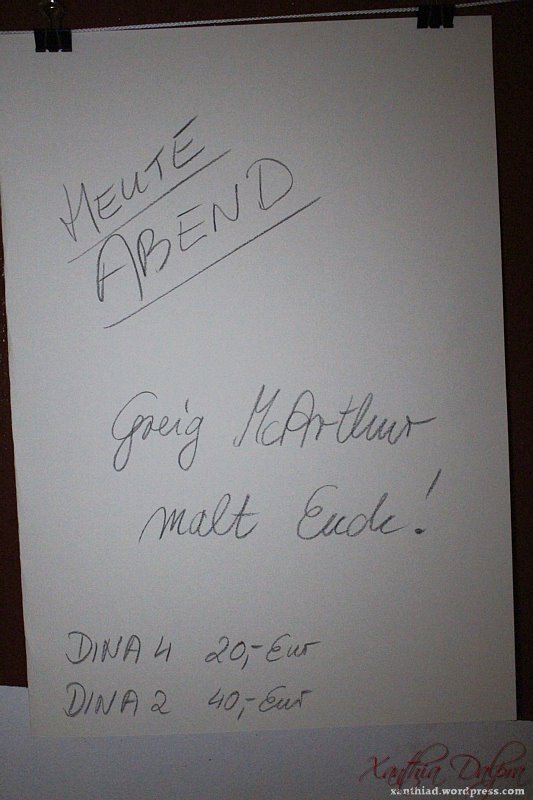 HEUTE
ABEND
Greig McArthur
malt Euch!
DINA4 20,- Eur
DINA2 40,- Eur
Xanthia Dalpra
xanthiad.wordpress.com